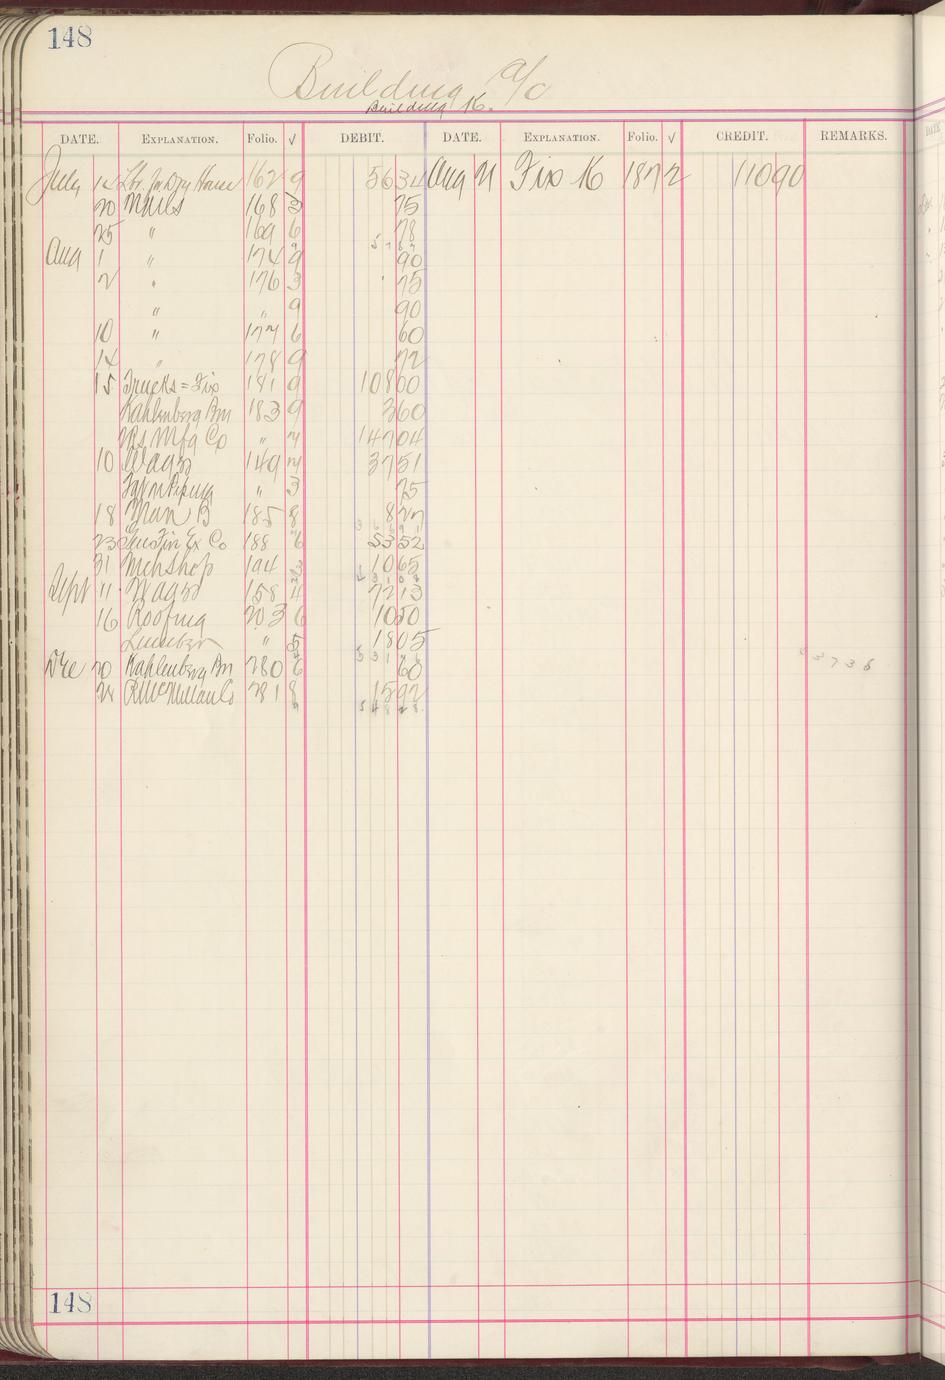 148
Building a/c
Building K.
DATE. EXPLANATION. Folio. √ DEBIT. DATE. EXPLANATION. Folio. √ CREDIT. REMARKS.
July 14 Lbr. for Dry House 162 9 5634 Aug 21 Fix K 187 2 11090
20 Nails 168 3 75
25 " 169 6 78
Aug 1 " 174 9 90
2 " 176 3 75
" " 9 90
10 " 177 6 60
14 " 178 9 72
15 Trucks = Fix 181 9 10800
Kahlenberg Bros 183 9 360
Mfg Co " 7 14704
10 Wages 149 7 3751
" 3 75
18 B 185 8 827
23 Ex Co 188 6 5352
31 Mch Shop 194 3 1065
Sept 11 Wages 158 4 7213
16 Roofing 203 6 1050
Lumber " 5 1805
Dec 20 Kahlenberg Bros 280 6 60
24 R McMullan Co 281 8 1592
148